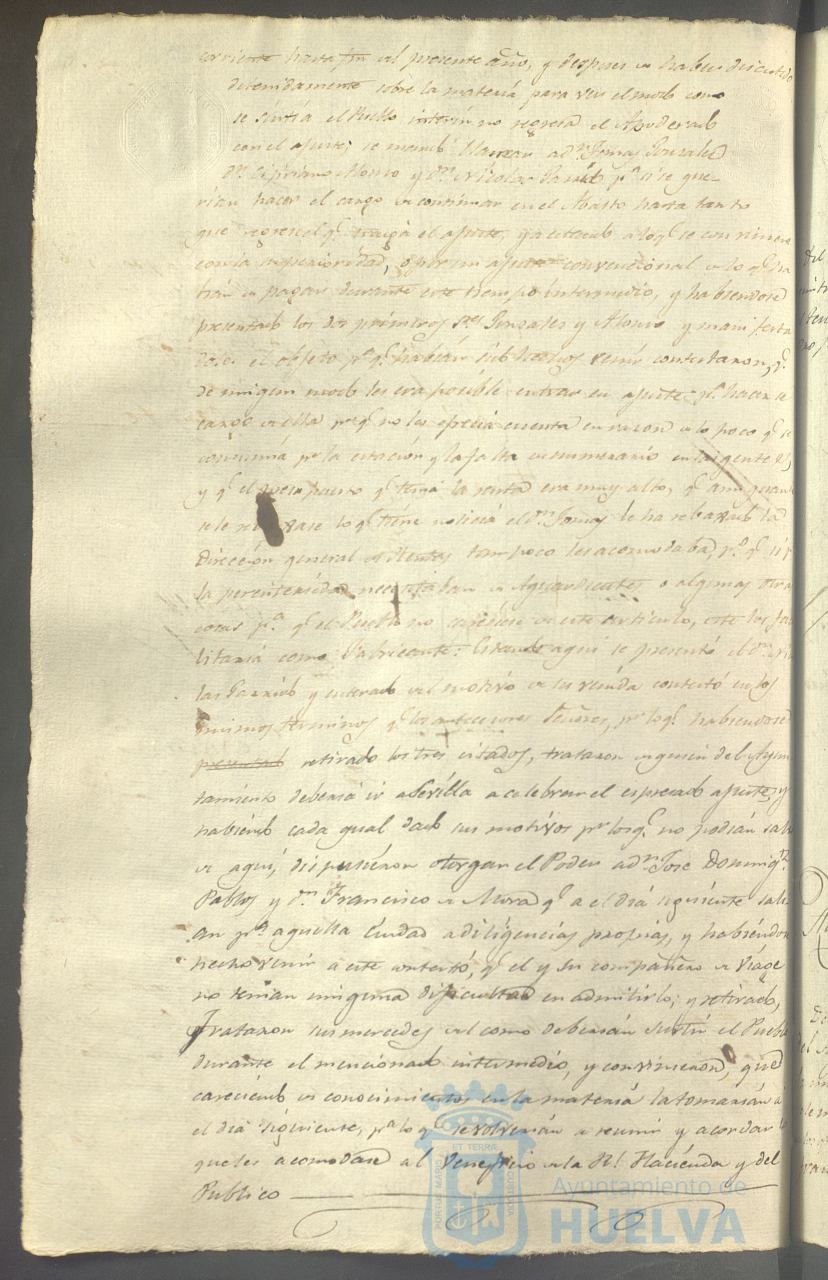 corriente hasta fin del presente año, y despues de haber discutido
detenidamente sobre la materia para ver el modo como
se surtia el Pueblo interin no regresa el Apoderado
con el ajuste; se mandó llamar a Dn. Tomas Gonzales
Dn. Cipriano Alonso y Dn. Nicolas pa. si se que-
rian hacer el cargo de continuar en el Abasto hasta tanto
que regrese el qe. traiga el ajuste, ya estando a lo qe. se conviniere
con la superioridad, o por un ajuste convencional de lo qe. ha
brán de pagar durante este tiempo intermedio, y habiendose
presentado los dos primeros Sres. Gonzales y Alonso y manifesta
dose el objeto pr. qe. habian sido venir contestaron, qe.
de ningun modo les era posible entrar en ajuste pa. hacerse
cargo de ella prqe. no les ofrecia cuenta en razon de lo poco qe. se
consumia pr. la estación y la falta de numerario en las gentes,
y qe. el presupuesto qe. tenia la renta era muy alto, qe. aun quan
se le rebaxase lo qe. tiene noticia el Dn. Tomas le ha rebaxado la
Dirección general de Rentas tampoco les acomodaba, pro. qe. si pr.
la perentoriedad necesitaban de Aguardientes o algunas otras
cosas pa. qe. el Pueblo no careciese de este articulo, este los faci
litaria como Fabricante: Estando aqui se presentó el Dn. Nico
las y enterado del motivo de su venida contestó en los
mismos terminos qe. los antecesores Señores, pr. lo qe. habiendose
retirado los tres citados, trataron de quien del Ayun
tamiento deberia ir a Sevilla a celebrar el espresado ajuste, y
habiendo cada qual dado sus motivos pr. los qe. no podian salir
de aqui, dispusieron otorgar el Poder a Dn. Jose Domingz.
Pablos y Dn. Francisco de Mora qe. a el dia siguiente sali
an pa. aquella Ciudad a diligencias propias, y habiendo
hecho venir a este contestó, qe. el y su compañero de viage
no tenian ninguna dificultad en admitirlo; y retirado,
Trataron sus mercedes del como deberian surtir el Pueblo
durante el mencionado intermedio, y convinieron, que
careciendo de conocimientos en la materia la tomarian a
el dia siguiente, pa. lo qe. se volverian a reunir y acordar lo
que les acomodase al veneficio de la Rl. Hacienda y del
Publico
PORTUS MARIS ET TERRAE CUSTODIA
Ayuntamiento de
HUELVA